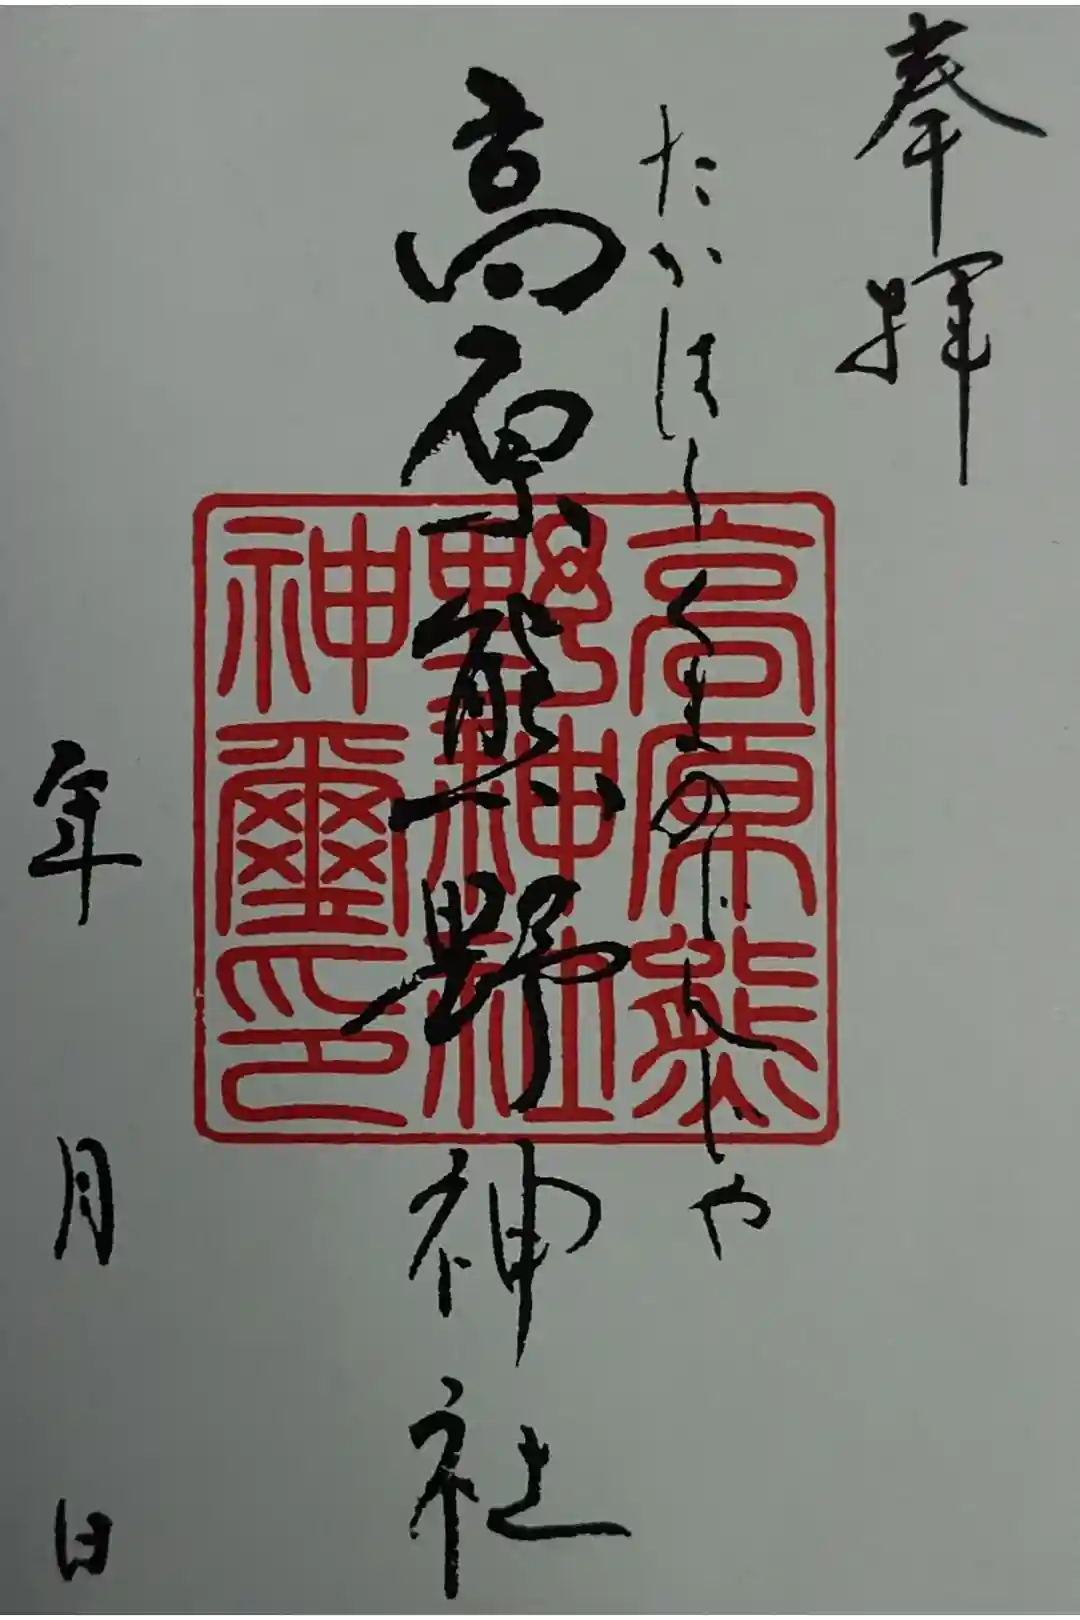 奉拝
たかはらくまのじんじや
高原熊野神社
高原熊
野神社
神璽印
年 月 日